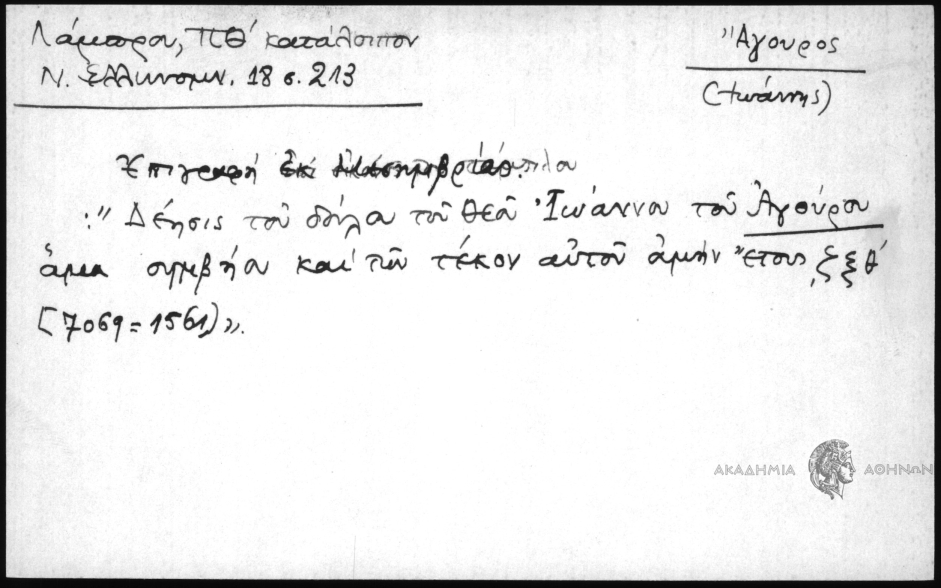 Λάμπρου, ΠΘ' κατάλοιπον
Ν. Ελληνομν. 18 σ. 213
Ἄγουρος
(Ιωάννης)
Ἐπιγραφή
:" Δέησις τοῦ δούλου τοῦ θεοῦ Ἰωάννου τοῦ Ἀγούρου
ἅμα συμβήου καὶ τῶν τέκον αὐτοῦ ἀμήν ἔτους ͵ζξθ'
[7069 = 1561)».
ΑΚΑΔΗΜΙΑ ΑΘΗΝΩΝ